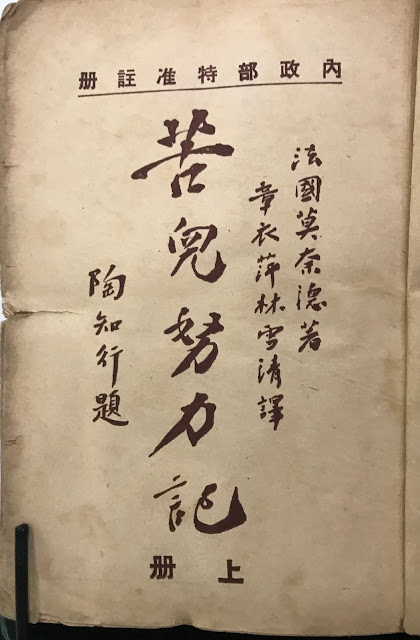 內政部特准註册
法國莫奈德著
章衣萍林雪清譯
苦兒努力記
上册
陶知行題